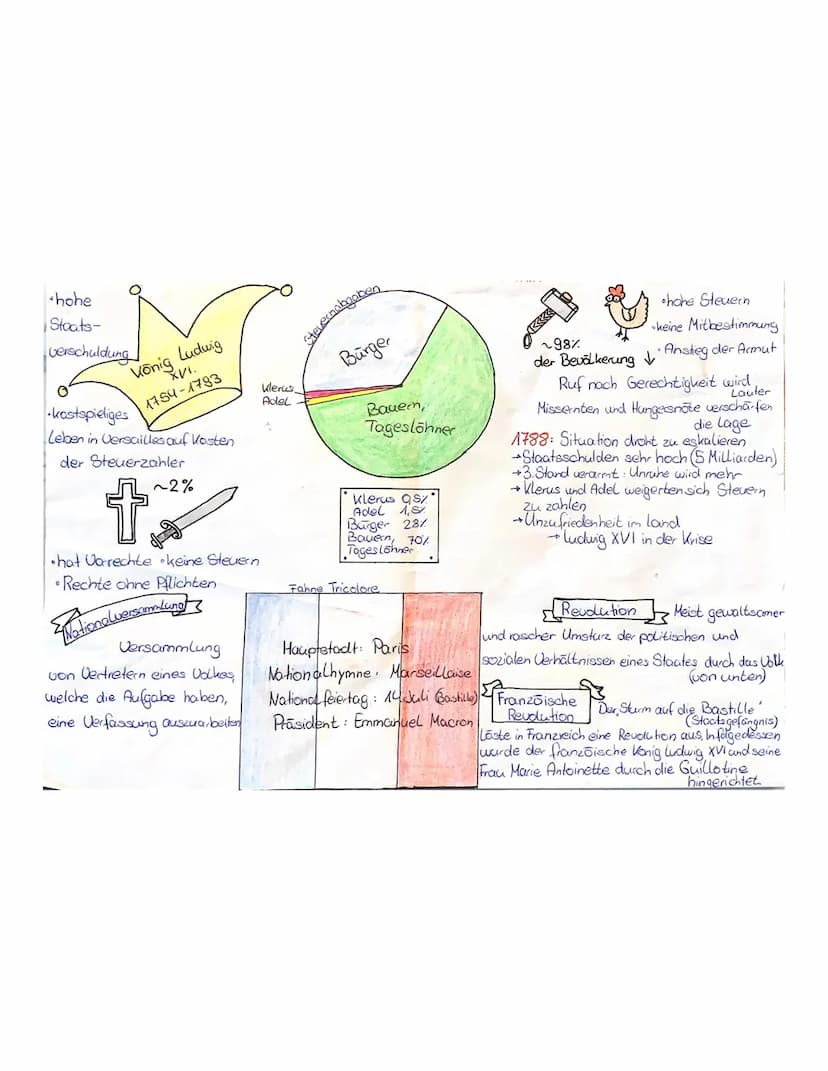 •hohe
Staats-
verschuldung
König Ludwig
XVI.
1754-1793
•kostspieliges
Leben in Versailles auf Kosten
der Steuerzahler
~2%
•hat Vorrechte •keine Steuern
•Rechte ohne Pflichten
Steuernabgaben
Bürger
Klerus
Adel
Bauern,
Tageslöhner
Klerus 0,5%
Adel 1,5%
Bürger 28%
Bauern, 70%
Tageslöhner
~98%
der Bevölkerung ↓
•hohe Steuern
•keine Mitbestimmung
• Anstieg der Armut
Ruf nach Gerechtigkeit wird
Lauter
Missernten und Hungersnöte verschärfen
die Lage
1788: Situation droht zu eskalieren
→Staatsschulden sehr hoch (5 Milliarden)
→3. Stand verarmt: Unruhe wird mehr
→Klerus und Adel weigerten sich Steuern
zu zahlen
→Unzufriedenheit im Land
→ Ludwig XVI in der Krise
Nationalversammlung
Versammlung
von Vertretern eines Volkes,
welche die Aufgabe haben,
eine Verfassung auszuarbeiten
Fahne Tricolore
Hauptstadt: Paris
Nationalhymne: Marseillaise
Nationalfeiertag: 14. Juli (Bastille)
Präsident: Emmanuel Macron
Revolution Meist gewaltsamer
und rascher Umsturz der politischen und
sozialen Verhältnissen eines Staates durch das Volk
(von unten)
Französische
Revolution
Der „Sturm auf die Bastille"
(Staatsgefängnis)
Löste in Frankreich eine Revolution aus. Infolgedessen
wurde der französische König Ludwig XVI und seine
Frau Marie Antoinette durch die Guillotine
hingerichtet